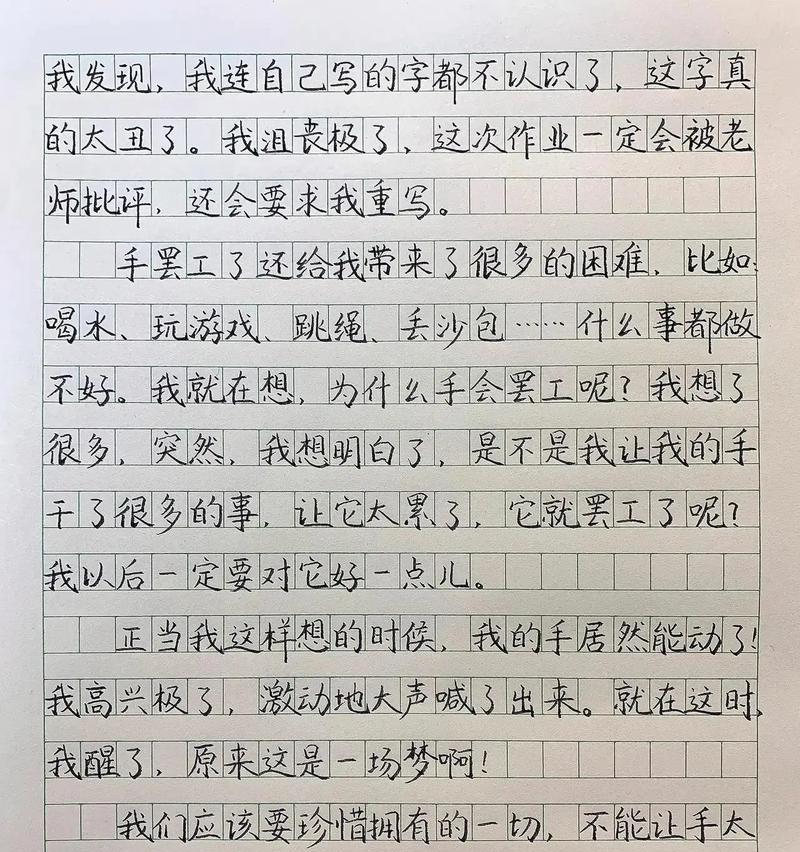 我发现，我连自己写的字都不认识了，这字真
的太丑了。我沮丧极了，这次作业一定会被老
师批评，还会要求我重写。
手罢工了还给我带来了很多的困难，比如：
喝水、玩游戏、跳绳、丢沙包……什么事都做
不好。我就在想，为什么手会罢工呢？我想了
很多，突然，我想明白了，是不是我让我的手
干了很多的事，让它太累了，它就罢工了呢？
我以后一定要对它好一点儿。
正当我这样想的时候，我的手居然能动了！
我高兴极了，激动地大声喊了出来。就在这时，
我醒了，原来这是一场梦啊！
我们应该要珍惜拥有的一切，不能让手太